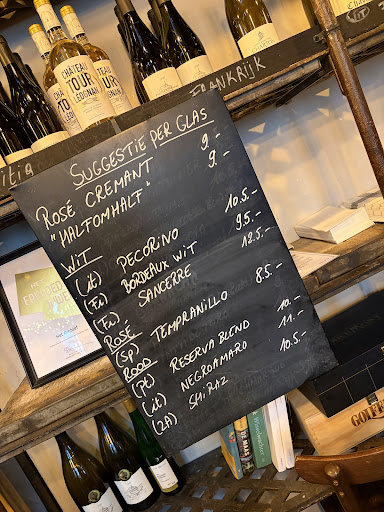 FRANKRIJK
CHÂTEAU
TOUR
LÉOGNAN
itia
SUGGESTIE PER GLAS
ROSÉ CREMANT 9.-
"HALFOMHALF" 9.-
WIT
(it) PECORINO 10.5.-
(FR) BORDEAUX WIT 9.5.-
(FR) SANCERRE 12.5.-
ROSÉ
(SP) TEMPRANILLO 8.5.-
ROOD
(Pt) RESERVA BLEND 10.-
(it) NEGROAMARO 11.-
(ZA) SHIRAZ 10.5.-
DE MAAS